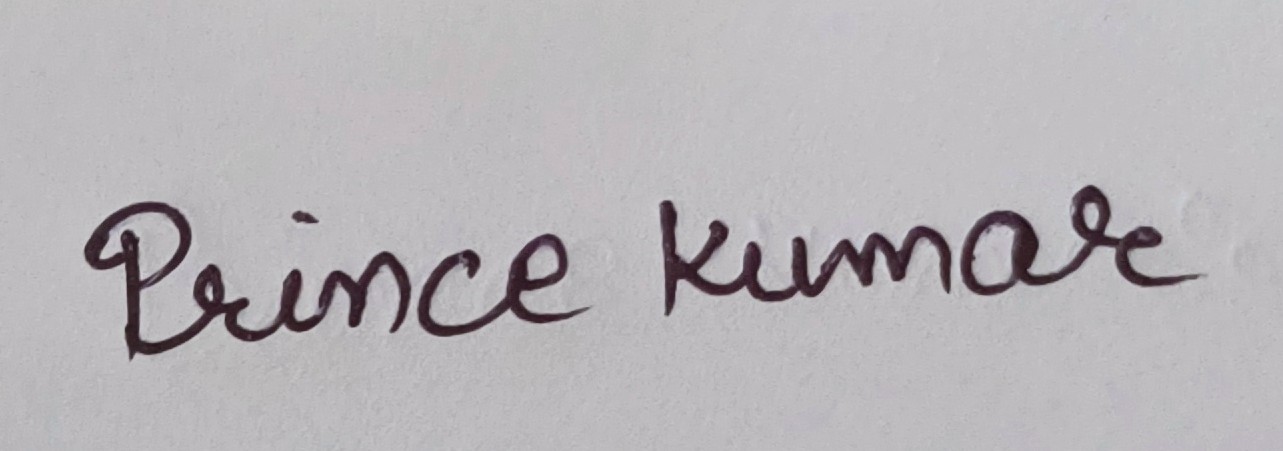 Prince Kumar